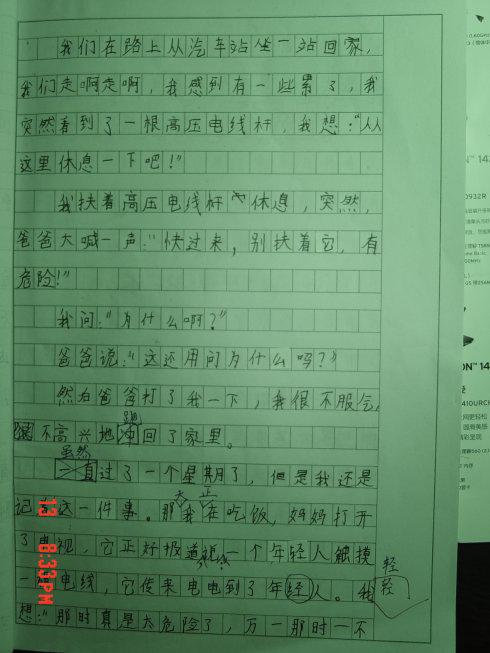 我们在路上从汽车站坐一站回家,
我们走啊走啊,我感到有一些累了,我
突然看到了一根高压电线杆,我想:"从
这里休息一下吧!"
我扶着高压电线杆 休息,突然,
爸爸大喊一声:"快过来,别扶着它,有
危险!"
我问:"为什么啊?"
爸爸说:"这还用问为什么吗?"
然后爸爸打了我一下,我很不服气,
跑
不高兴地冲回了家里。
虽然
一直过了一个星期了,但是我还是
记 这一件事。那 我在吃饭,妈妈打开
天 正
了电视,它正好报道 一个年轻人触摸
一 电线,它传来电电到了年经人。我
轻
轻
想:"那时真是太危险了,万一那时一不
13 8:33PM
0932R
410URCH